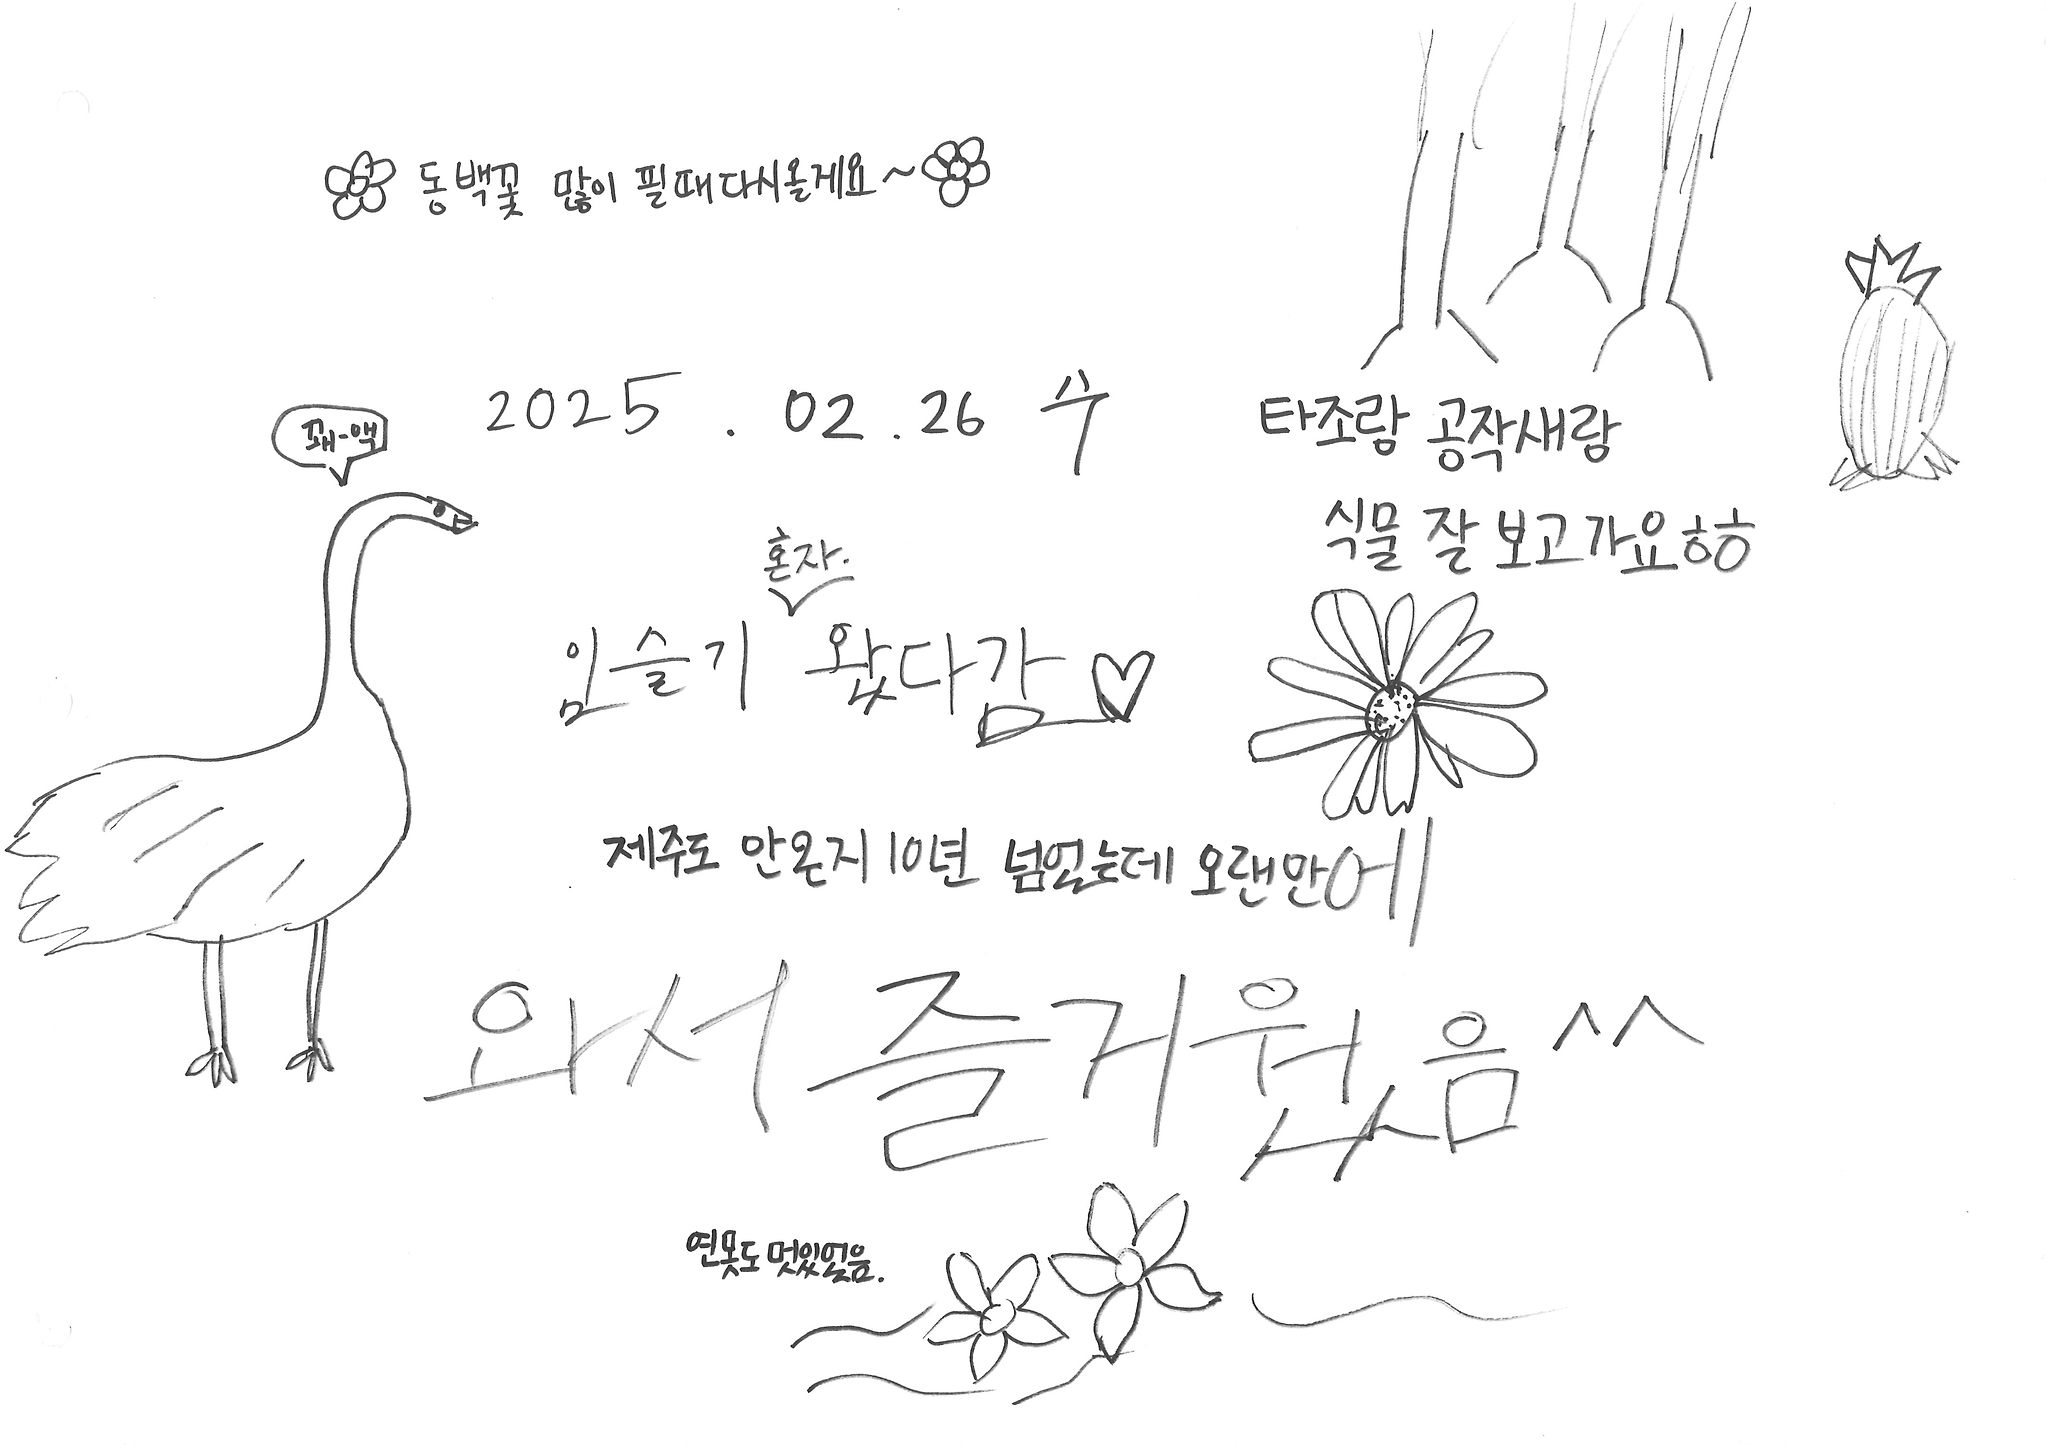 동백꽃 많이 필때 다시올게요~
2025.02.26 수
꽤-액
타조랑 공작새랑
식물 잘 보고가요ㅎㅎ
혼자.
임슬기 왔다감♡
제주도 안온지 10년 넘었는데 오랜만에
와서 즐거웠음^^
연못도 멋있었음.